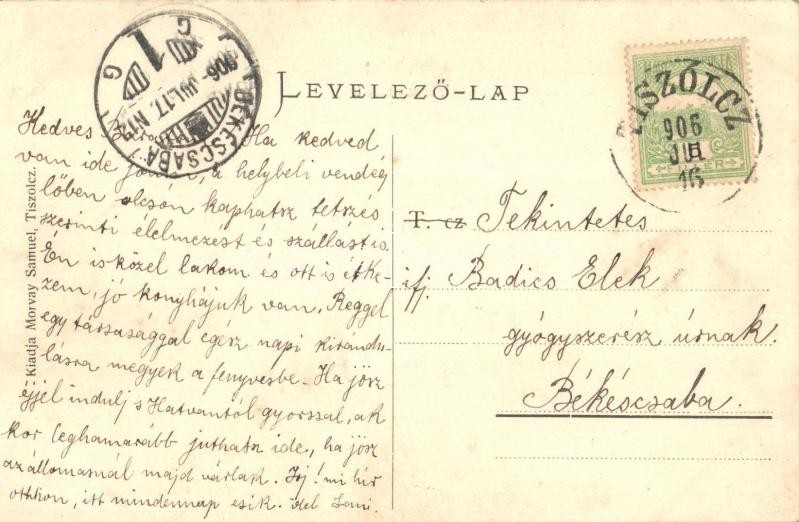 LEVELEZŐ-LAP
BÉKÉSCSABA
906 JUL 17
1
G
G
TISZOLCZ
906
JUL
16
FILLÉR
Kedves
Ha kedved
van ide jönni, a helybeli vendég
lőben olcsón kaphatsz tetszés
szerinti élelmezést és szállást is.
Én is közel lakom és ott is étke
zem, jó konyhájuk van. Reggel
egy társasággal egész napi kirándu-
lásra megyek a fenyvesbe. Ha jösz
éjjel indulj s Hatvantól gyorssal, ak
kor leghamarább juthatsz ide, ha jösz
az állomásnál majd várlak. Írj! mi hír
otthon, itt mindennap esik. ölel Jani.
Kiadja Morvay Samuel, Tiszolcz.
T. cz Tekintetes
ifj. Badics Elek
gyógyszerész úrnak.
Békéscsaba.